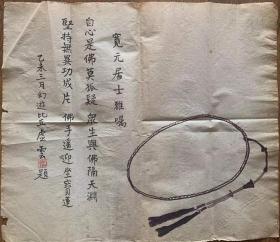 寬元居士雅囑
自心是佛莫狐疑 眾生與佛隔天淵
堅持無異功成片 佛手遙迎坐寶蓮
乙未三月幻遊比丘虛雲題